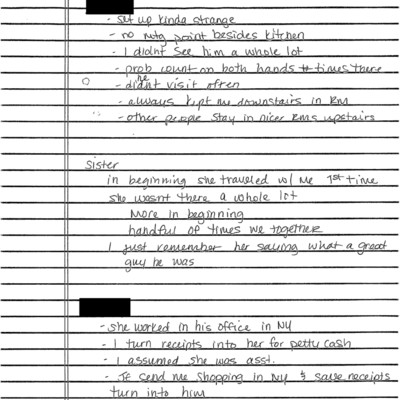 - set up kinda strange
- no mtg point besides kitchen
- I didnt see him a whole lot
- prob count on both hands # times there
- he didnt visit often
- always kept me downstairs in RM
- other people stay in nicer rms upstairs
Sister
in beginning she traveled w/ me 1st time
she wasnt there a whole lot
more in beginning
handful of times we together
I just remember her saying what a great
guy he was
- she worked in his office in NY
- I turn receipts into her for petty cash
- I assumed she was asst.
- JE send me shopping in NY & save receipts
turn into him